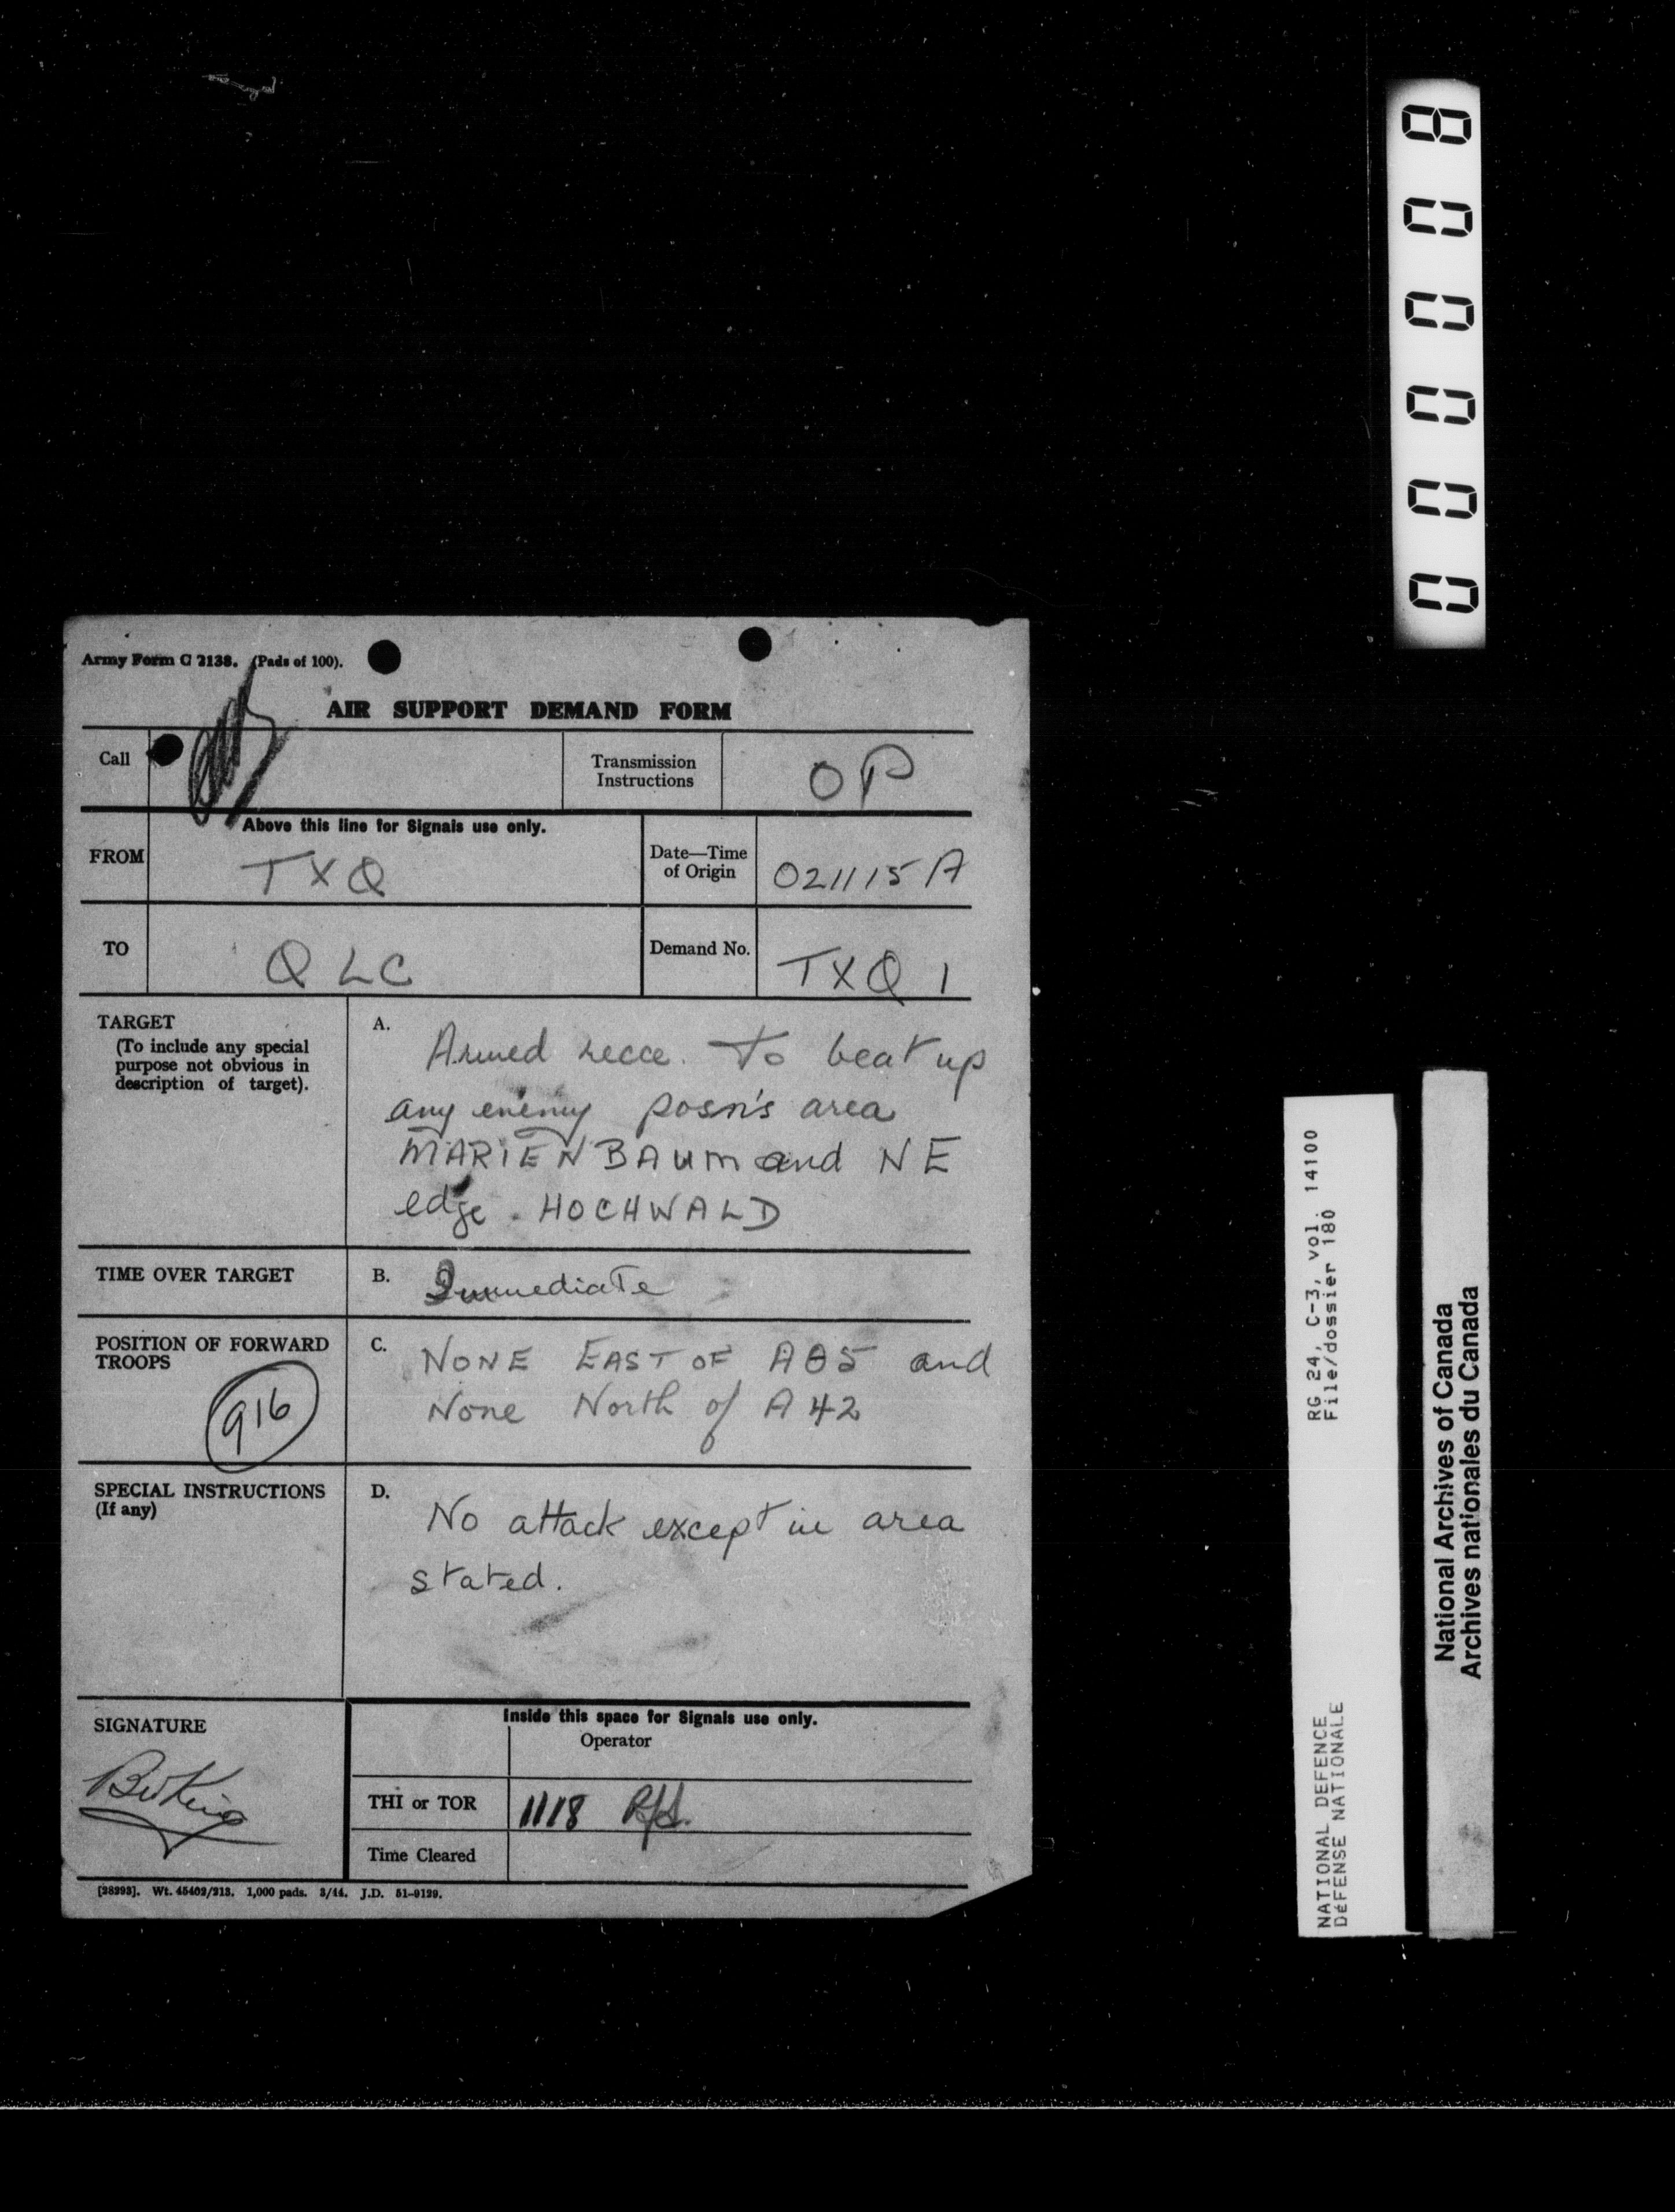 Army Form C 2138. (Pads of 100).
AIR SUPPORT DEMAND FORM
Call
Transmission Instructions
OP
Above this line for Signals use only.
FROM
TXQ
Date—Time of Origin
021115 A
TO
QLC
Demand No.
TXQ 1
TARGET
(To include any special
purpose not obvious in
description of target).
A.
Armed recce. To beat up
any enemy posn's area
MARIENBAUM and NE
edge. HOCHWALD
TIME OVER TARGET
B.
Immediate
POSITION OF FORWARD
TROOPS
916
C.
NONE EAST OF A05 and
None North of A 42
SPECIAL INSTRUCTIONS
(If any)
D.
No attack except in area
stated.
SIGNATURE
Inside this space for Signals use only.
Operator
THI or TOR
1118
Time Cleared
[28293]. Wt. 45402/213. 1,000 pads. 3/44. J.D. 51-9129.
000008
RG 24, C-3, vol. 14100
File/dossier 180
NATIONAL DEFENCE
DéFENSE NATIONALE
National Archives of Canada
Archives nationales du Canada